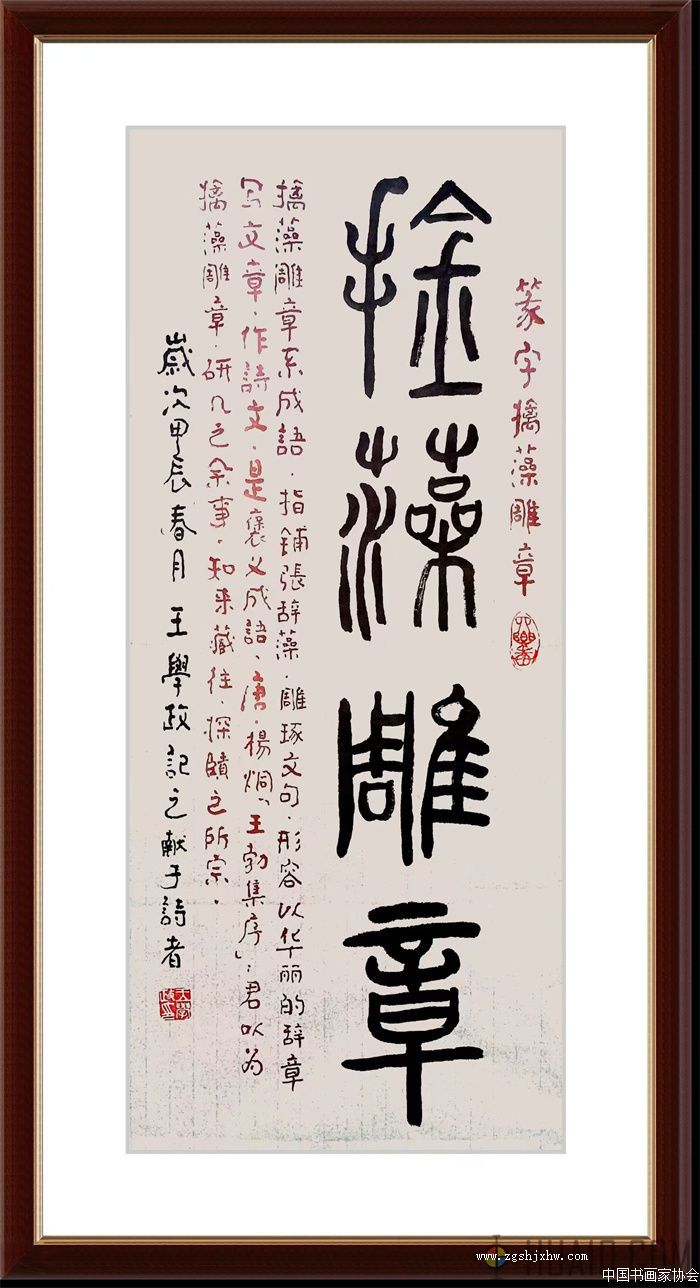 篆字摛藻雕章
摛藻雕章
摛藻雕章系成語．指鋪張辞藻．雕琢文句．形容以华丽的辞章
写文章．作詩文．是褒义成語．唐．楊炯「王勃集序」：君以为
摛藻雕章．研几之余事．知来藏往．探賾之所宗．
歲次甲辰春月王學政記之献于詩者
www.zgshjxhw.com
中国书画家协会